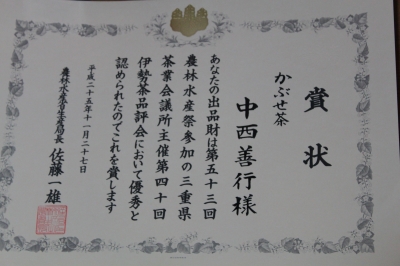 賞状
かぶせ茶
中西善行様
あなたの出品財は第五十三回
農林水産祭参加の三重県
茶業会議所主催第四十回
伊勢茶品評会において優秀と
認められたのでこれを賞します
平成二十五年十一月二十七日
農林水産省生産局長 佐藤一雄